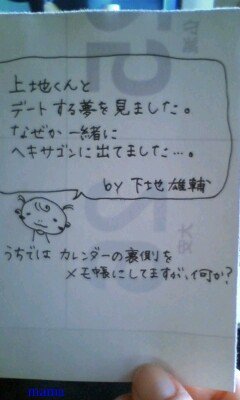 上地くんと
デートする夢を見ました。
なぜか一緒に
ヘキサゴンに出てました…。
by 下地 雄輔
うちでは カレンダーの裏側を
メモ帳にしてますが、何か?
mama